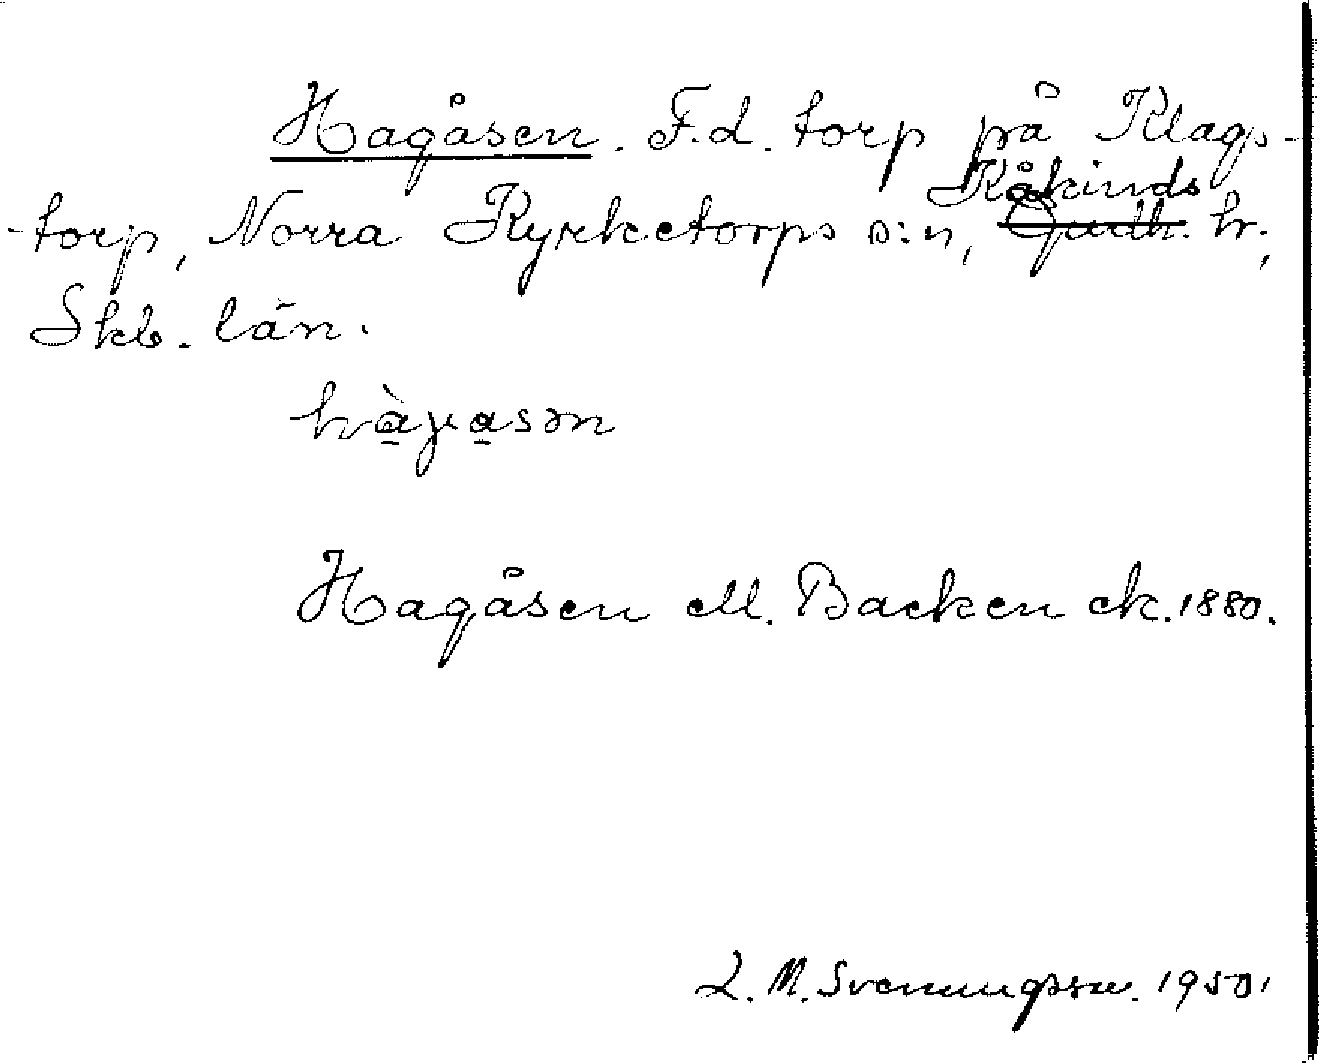 Hagåsen. F.d. torp på Klags-
torp, Norra Kyrketorps s:n, Kåkinds Gudh. hr.,
Skb. län.
Hagåsen ell. Backen ek. 1880.
L. M. Svenungsson. 1950.